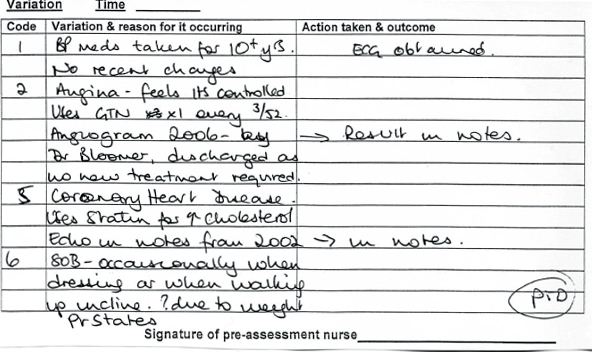 Variation Time
Code Variation & reason for it occurring Action taken & outcome
1 BP meds taken for 10+ yrs. ECG obtained.
No recent changes
2 Angina - feels its controlled
Uses GTN x1 every 3/52.
Angiogram 2006 - by → Result in notes.
Dr Bloomer, discharged as
no new treatment required.
5 Coronary Heart Disease.
Uses Statin for ↑ cholesterol
Echo in notes from 2002 → in notes.
6 SOB - occasionally when
dressing or when walking
up incline. ? due to weight P.T.O
Pt States
Signature of pre-assessment nurse